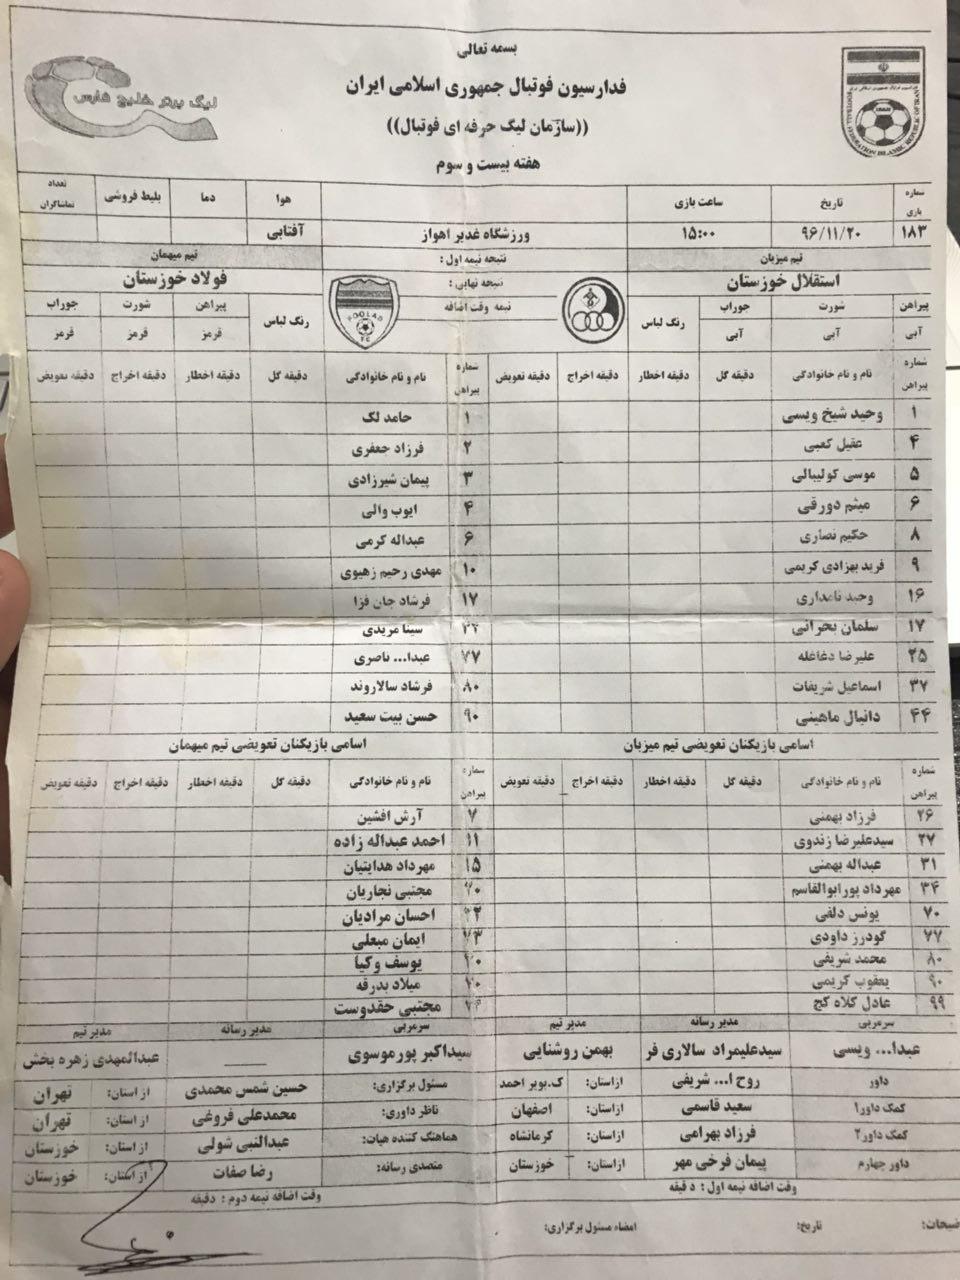 بسمه تعالی
فدراسیون فوتبال جمهوری اسلامی ایران
((سازمان لیگ حرفه ای فوتبال))
هفته بیست و سوم
لیگ برتر خلیج فارس
FOOTBALL FEDERATION ISLAMIC REPUBLIC OF IRAN
شماره بازی تاریخ ساعت بازی هوا دما بلیط فروشی تعداد تماشاگران
۱۸۳ ۹۶/۱۱/۲۰ ۱۵:۰۰ ورزشگاه غدیر اهواز آفتابی
تیم میزبان نتیجه نیمه اول : تیم میهمان
استقلال خوزستان نتیجه نهایی : فولاد خوزستان
نیمه وقت اضافه
FOOLAD FC
پیراهن شورت جوراب رنگ لباس پیراهن شورت جوراب
آبی آبی آبی رنگ لباس قرمز قرمز قرمز
شماره پیراهن نام و نام خانوادگی دقیقه گل دقیقه اخطار دقیقه اخراج دقیقه تعویض شماره پیراهن نام و نام خانوادگی دقیقه گل دقیقه اخطار دقیقه اخراج دقیقه تعویض
۱ وحید شیخ ویسی ۱ حامد لک
۴ عقیل کعبی ۲ فرزاد جعفری
۵ موسی کولیبالی ۳ پیمان شیرزادی
۶ میثم دورقی ۴ ایوب والی
۸ حکیم نصاری ۶ عبداله کرمی
۹ فرید بهزادی کریمی ۱۰ مهدی رحیم زهیوی
۱۶ وحید نامداری ۱۷ فرشاد جان فزا
۱۷ سلمان بحرانی سینا مریدی
۲۵ علیرضا دغاغله ۷۷ عبدا... ناصری
۳۷ اسماعیل شریفات ۸۰ فرشاد سالاروند
۴۴ دانیال ماهینی ۹۰ حسن بیت سعید
اسامی بازیکنان تعویضی تیم میزبان اسامی بازیکنان تعویضی تیم میهمان
شماره پیراهن نام و نام خانوادگی دقیقه گل دقیقه اخطار دقیقه اخراج دقیقه تعویض شماره پیراهن نام و نام خانوادگی دقیقه گل دقیقه اخطار دقیقه اخراج دقیقه تعویض
۲۶ فرزاد بهمنی ۷ آرش افشین
۲۷ سیدعلیرضا زندوی ۱۱ احمد عبداله زاده
۳۱ عبداله بهمنی ۱۵ مهرداد هدایتیان
۳۴ مهرداد پورابوالقاسم مجتبی نجاریان
۷۰ یونس دلفی احسان مرادیان
۷۷ گودرز داودی ایمان مبعلی
۸۰ محمد شریفی یوسف وکیا
۹۰ یعقوب کریمی میلاد بدرقه
۹۹ عادل کلاه کج مجتبی حقدوست
سرمربی مدیر رسانه مدیر تیم سرمربی مدیر رسانه مدیر تیم
عبدا... ویسی سیدعلیمراد سالاری فر بهمن روشنایی سیداکبر پورموسوی عبدالمهدی زهره بخش
داور روح ا... شریفی ازاستان: ک.بویر احمد مسئول برگزاری: حسین شمس محمدی از استان: تهران
کمک داور۱ سعید قاسمی ازاستان: اصفهان ناظر داوری: محمدعلی فروغی از استان: تهران
کمک داور۲ فرزاد بهرامی ازاستان: کرمانشاه هماهنگ کننده هیات: عبدالنبی شولی از استان: خوزستان
داور چهارم پیمان فرخی مهر ازاستان: خوزستان متصدی رسانه: رضا صفات از استان: خوزستان
وقت اضافه نیمه اول : دقیقه وقت اضافه نیمه دوم : دقیقه
تاریخ: امضاء مسئول برگزاری: